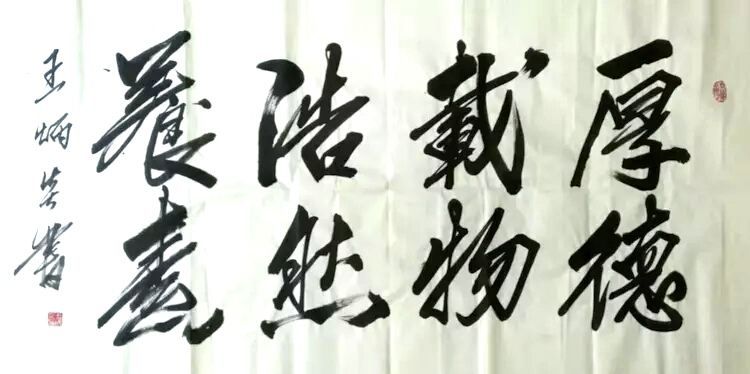 厚德
載物
浩然
養
王炳書